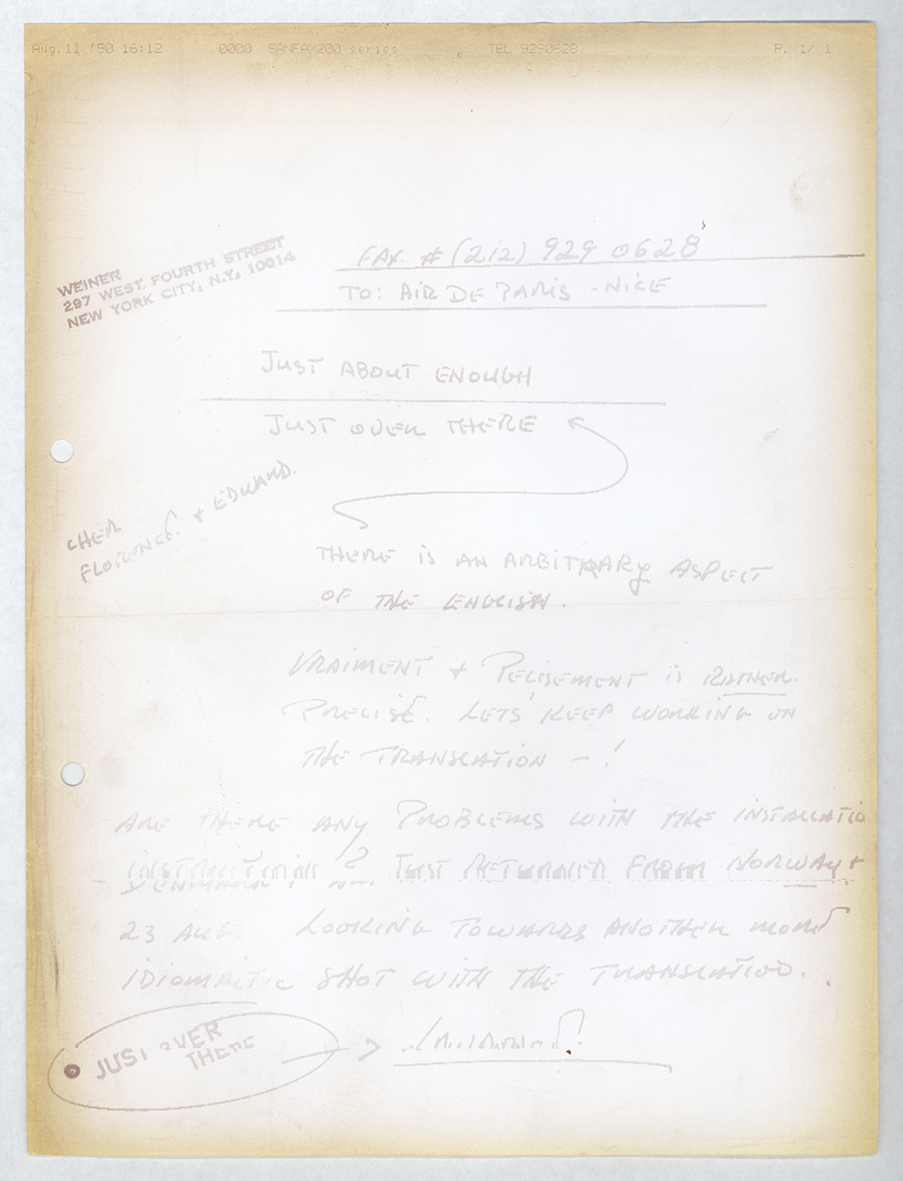 Aug.11 '90 16:12 0000 SANFAX200 series TEL 9290628 P. 1/ 1
WEINER
297 WEST FOURTH STREET
NEW YORK CITY, N.Y. 10014
FAX # (212) 929 0628
TO: AIR DE PARIS - NICE
JUST ABOUT ENOUGH
JUST OVER THERE
CHER
FLORENCE & EDWARD.
THERE IS AN ARBITRARY ASPECT
OF THE ENGLISH.
VRAIMENT & PECISEMENT IS RATHER
PRECISE. LETS KEEP WORKING ON
THE TRANSLATION - !
ARE THERE ANY PROBLEMS WITH THE INSTALLATIO
INSTRUCTIONS? JUST RETURNED FROM NORWAY &
23 AUG. LOOKING TOWARDS ANOTHER MORE
IDIOMATIC SHOT WITH THE TRANSLATION.
JUST OVER
THERE